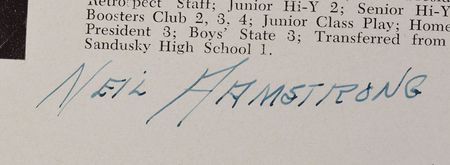 Retrospect Staff; Junior Hi-Y 2; Senior Hi-Y
Boosters Club 2, 3, 4; Junior Class Play; Home
President 3; Boys' State 3; Transferred from
Sandusky High School 1.
NEIL ARMSTRONG